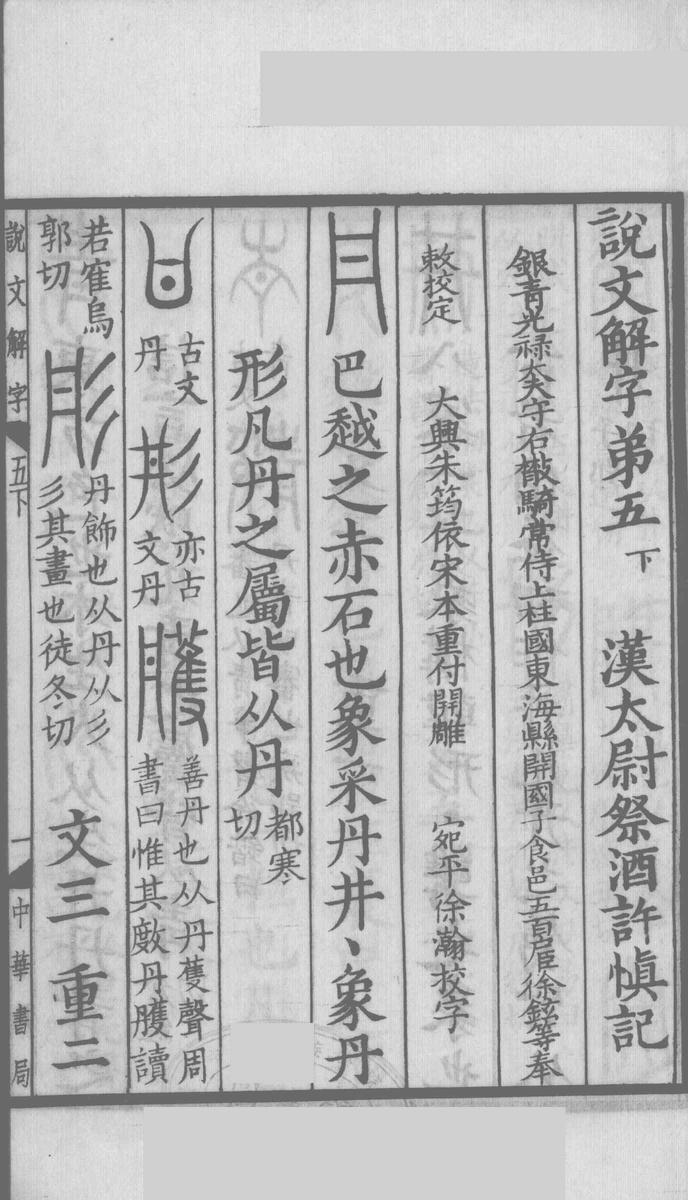 說文解字弟五下 漢太尉祭酒許慎記
銀青光祿大夫守右散騎常侍上柱國東海縣開國子食邑五百戶臣徐鉉等奉
敕校定 大興朱筠依宋本重付開雕 宛平徐瀚校字
丹 巴越之赤石也象采丹井丶象丹
形凡丹之屬皆从丹都寒
切
古文
丹
亦古
文丹
雘
善丹也从丹蒦聲周
書曰惟其𢾖丹雘讀
若寉烏
郭切
彤
丹飾也从丹从彡
彡其畫也徒冬切
文三 重二
說文解字 五下 一 中華書局